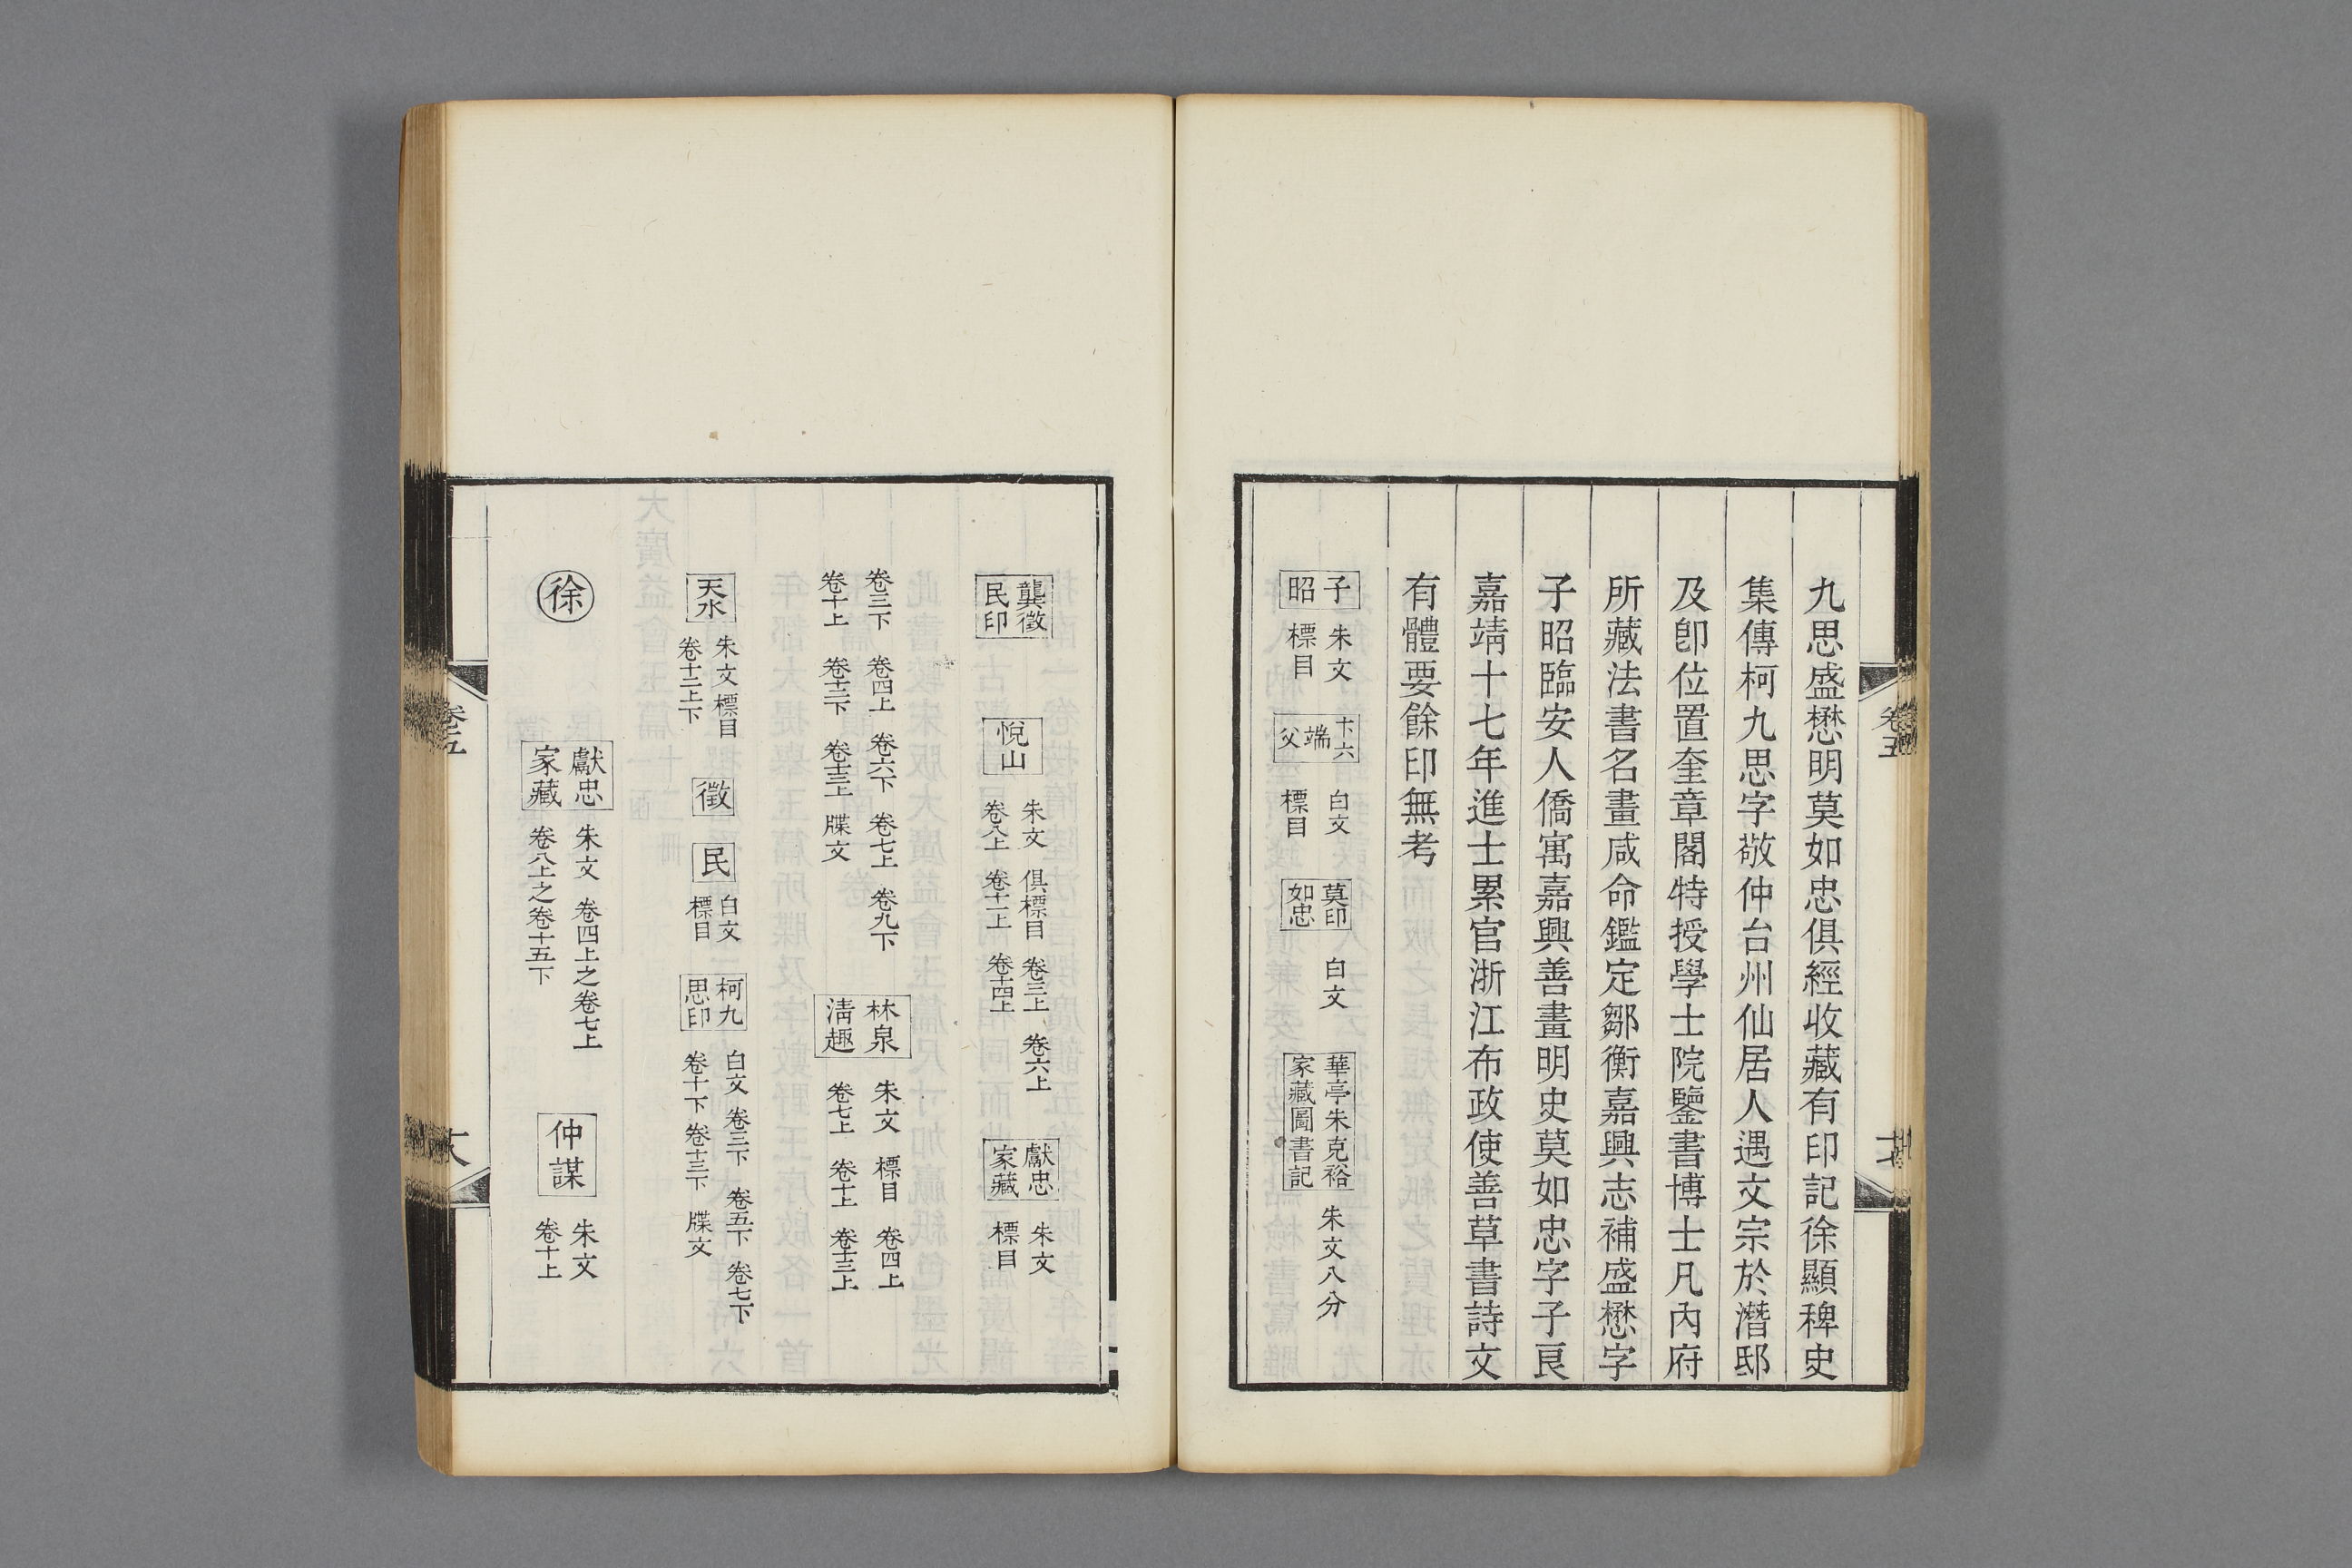 九思盛懋明莫如忠俱經收藏有印記徐顯稗史
集傳柯九思字敬仲台州仙居人遇文宗於潛邸
及卽位置奎章閣特授學士院鑒書博士凡內府
所藏法書名畫咸命鑑定鄒衡嘉興志補盛懋字
子昭臨安人僑寓嘉興善畫明史莫如忠字子良
嘉靖十七年進士累官浙江布政使善草書詩文
有體要餘印無考
子昭
朱文
標目
卞六端父
白文
標目
莫印如忠
白文
華亭朱克裕
家藏圖書記
朱文八分
龔徵
民印
悅山
朱文 俱標目 卷三上 卷六上
卷八上 卷十一上 卷十四上
獻忠
家藏
朱文
標目
卷三下 卷四上 卷六下 卷七上 卷九下
卷十上 卷十二下 卷十三上 牒文
林泉
淸趣
朱文 標目 卷四上
卷七上 卷十上 卷十三上
天水
朱文 標目
卷十二上下
徵
民
白文
標目
柯九
思印
白文 卷三下 卷五下 卷七下
卷十下 卷十三下 牒文
徐
獻忠
家藏
朱文 卷四上之卷七上
卷八上之卷十五下
仲謀
朱文
卷十上
卷五